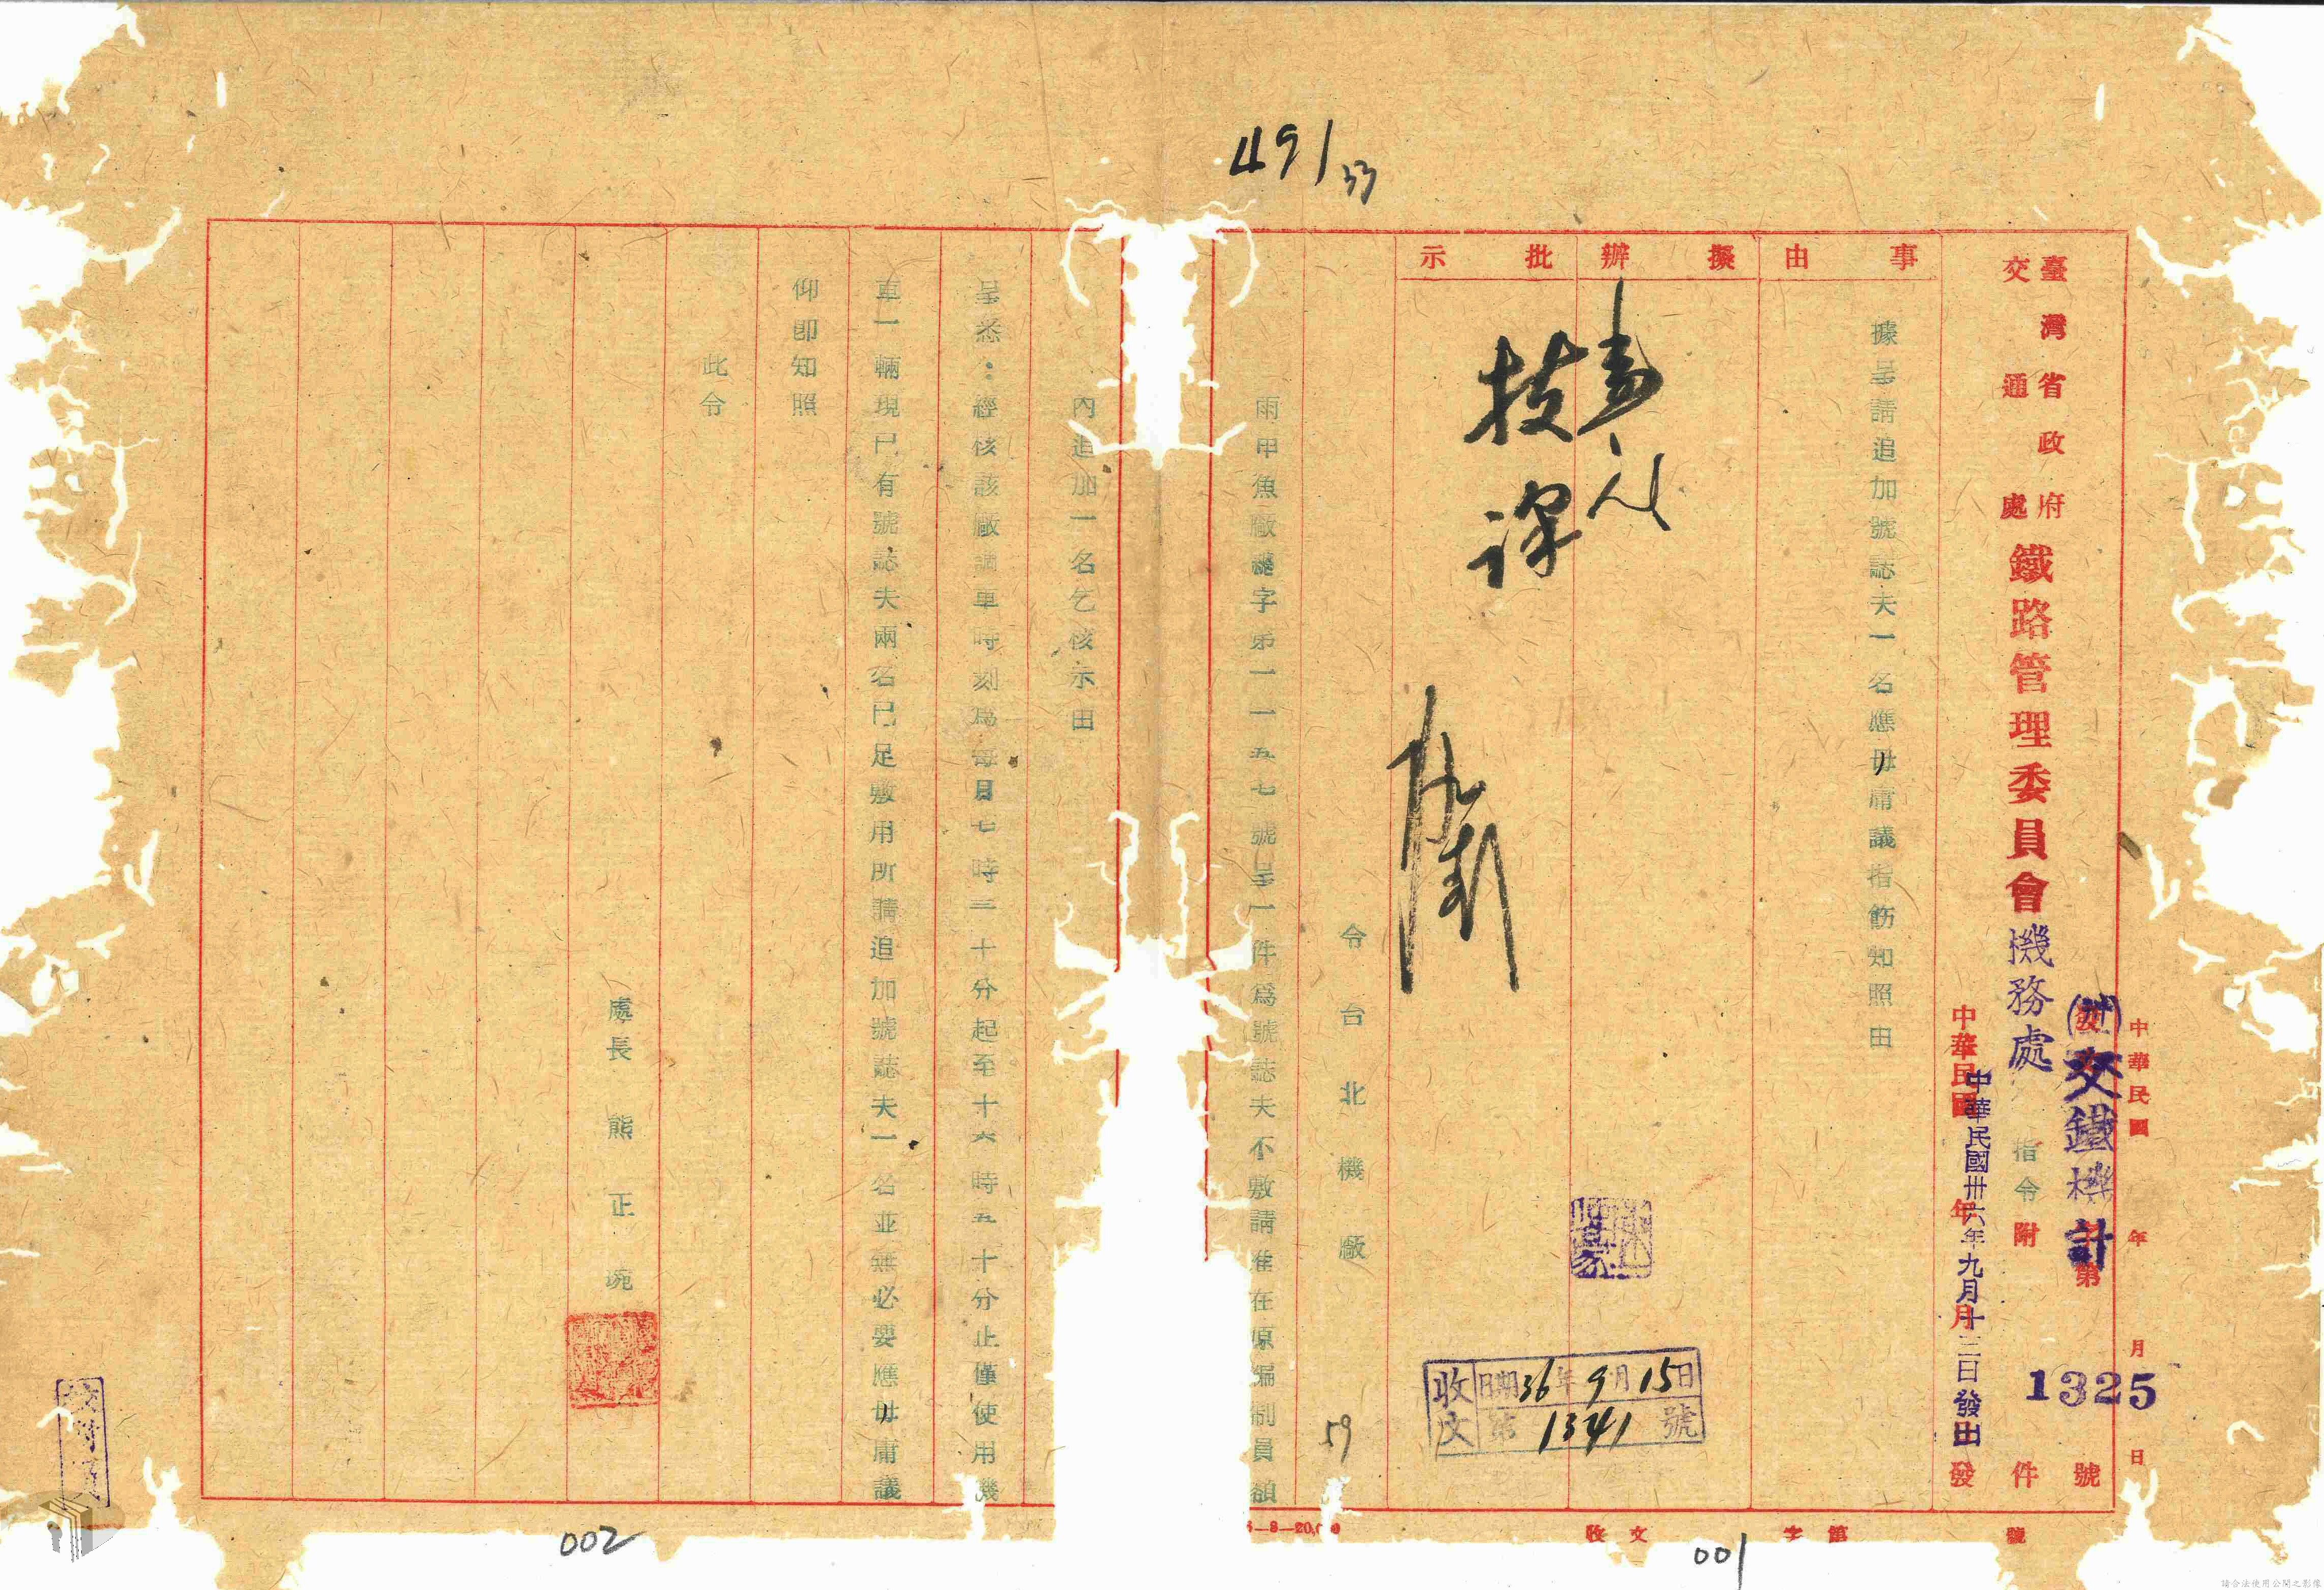 491
33
臺灣省政府
交通處
鐵路管理委員會機務處
指令
附件
(卅)交鐵機計
發
第1325號
中華民國 年 月 日
中華民國 年 月 日發
中華民國卅六年九月十三日發出
事由
擬辦
批示
據呈請追加號誌夫一名應毋庸議指飭知照由
技
課
收文
日期36年9月15日
第1341號
令台北機廠
59
雨甲魚廠總字第一一五七號呈一件爲號誌夫不敷請准在原編制員額
內追加一名乞核示由
呈悉：經核該廠調車時刻爲每日七時三十分起至十六時五十分止僅使用機
車一輛現已有號誌夫兩名已足敷用所請追加號誌夫一名並無必要應毋庸議
仰卽知照
此令
處長 熊正琬
校對
收文 字第 號
001
002
請合法使用公開之影像